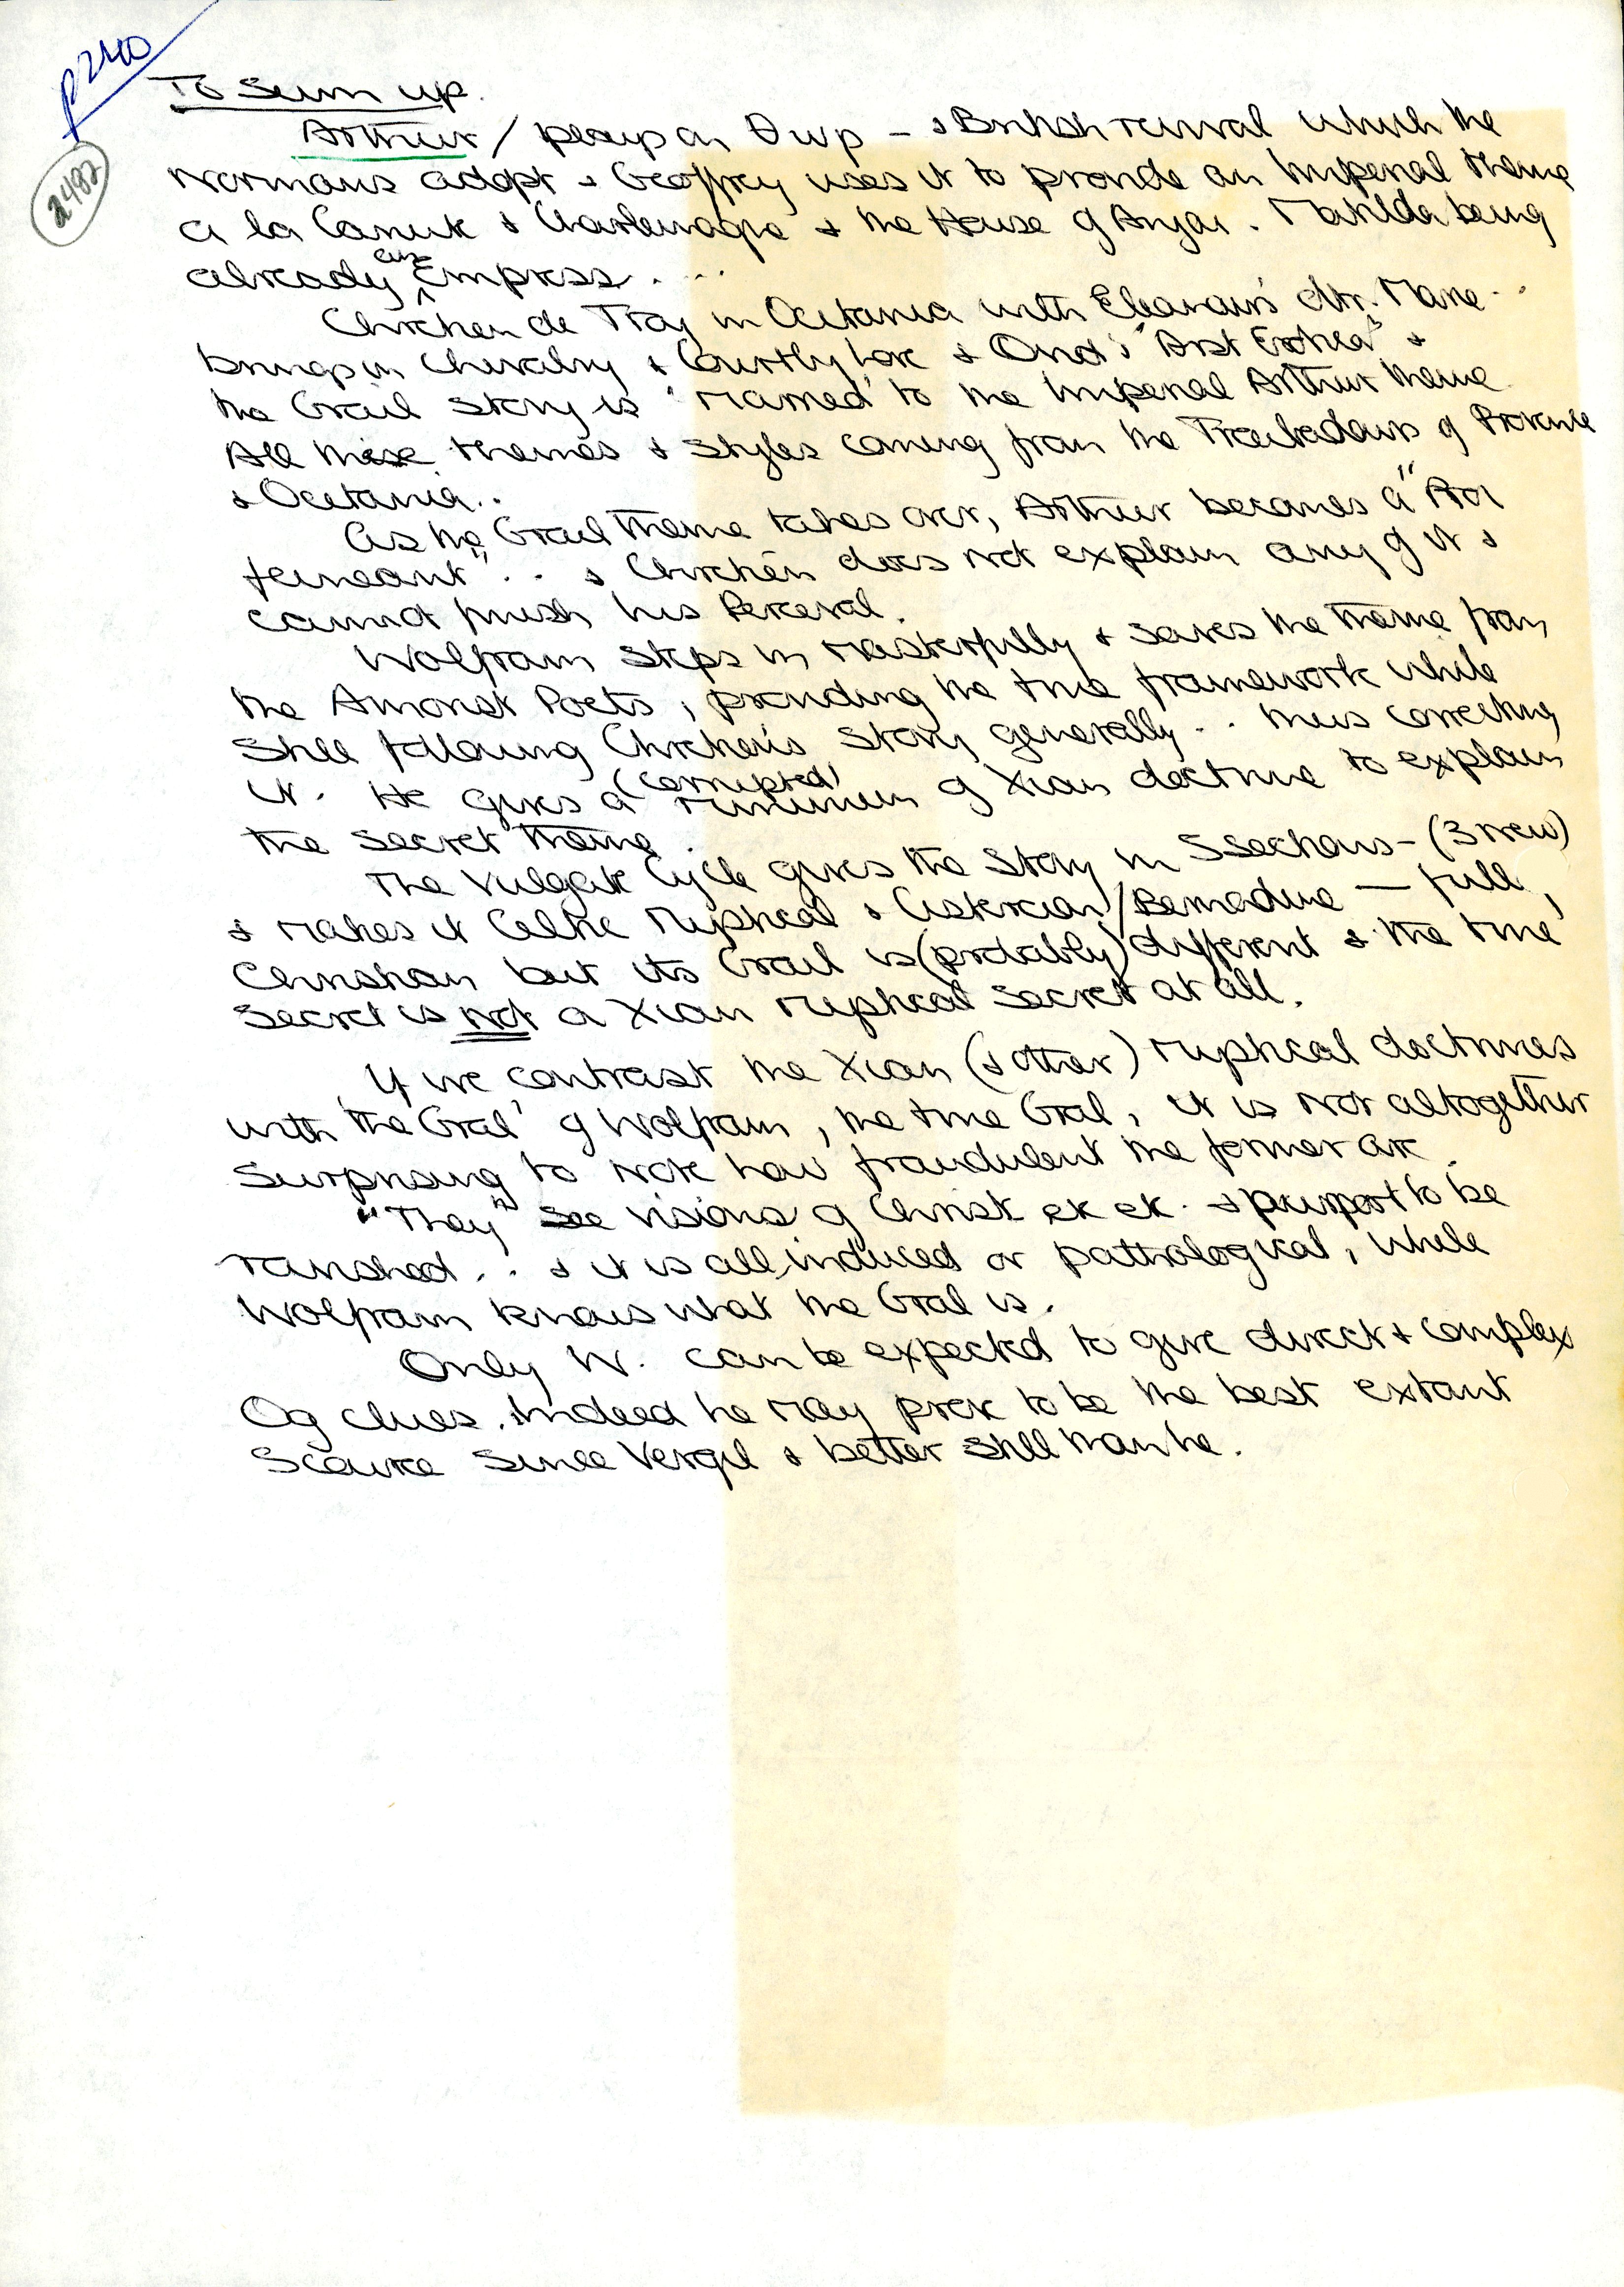 p240
2482
To Sum up.
Arthur / plays on θ wp - & British revival which the
Normans adopt & Geoffrey uses it to provide an Imperial theme
a la Canute & Charlemagne & the House of Anjou. Matilda being
already an Empress. . . .
Chrétien de Troy in Occitania with Eleanor's dtr. Marie . .
brings in Chivalry & Courtly Love & Ovid's "Arst Erotica" &
the Grail Story is 'married' to the Imperial Arthur theme
All these themes & styles coming from the Troubadours of Provence
& Occitania. .
As the Grail theme takes over, Arthur becomes a "Roi
feineant" . . & Chretien does not explain any of it &
cannot finish his Perceval.
Wolfram steps in masterfully & saves the theme from
the Amorist Poets, providing the true framework while
still following Chretien's Story generally . . thus correcting
it. He gives a (corrupted) minimum of Xian doctrine to explain
the secret theme.
The Vulgate Cycle gives the story in 5 sections - (3 new)
& makes it Celtic Mystical & Cistercian / Bernadine — full,
Christian but its Grail is (probably) different & the true
Secret is not a Xian mystical secret at all.
If we contrast the Xian (& other) mystical doctrines
with 'the Gral' of Wolfram, the true Gral, it is not altogether
surprising to note how fraudulent the former are.
"They" see visions of Christ etc etc. & purport to be
ravished . . & it is all induced or pathological, while
Wolfram knows what the Gral is.
Only W. can be expected to give direct & complex
Og clues. Indeed he may prove to be the best extant
Source since Vergil & better still than he.